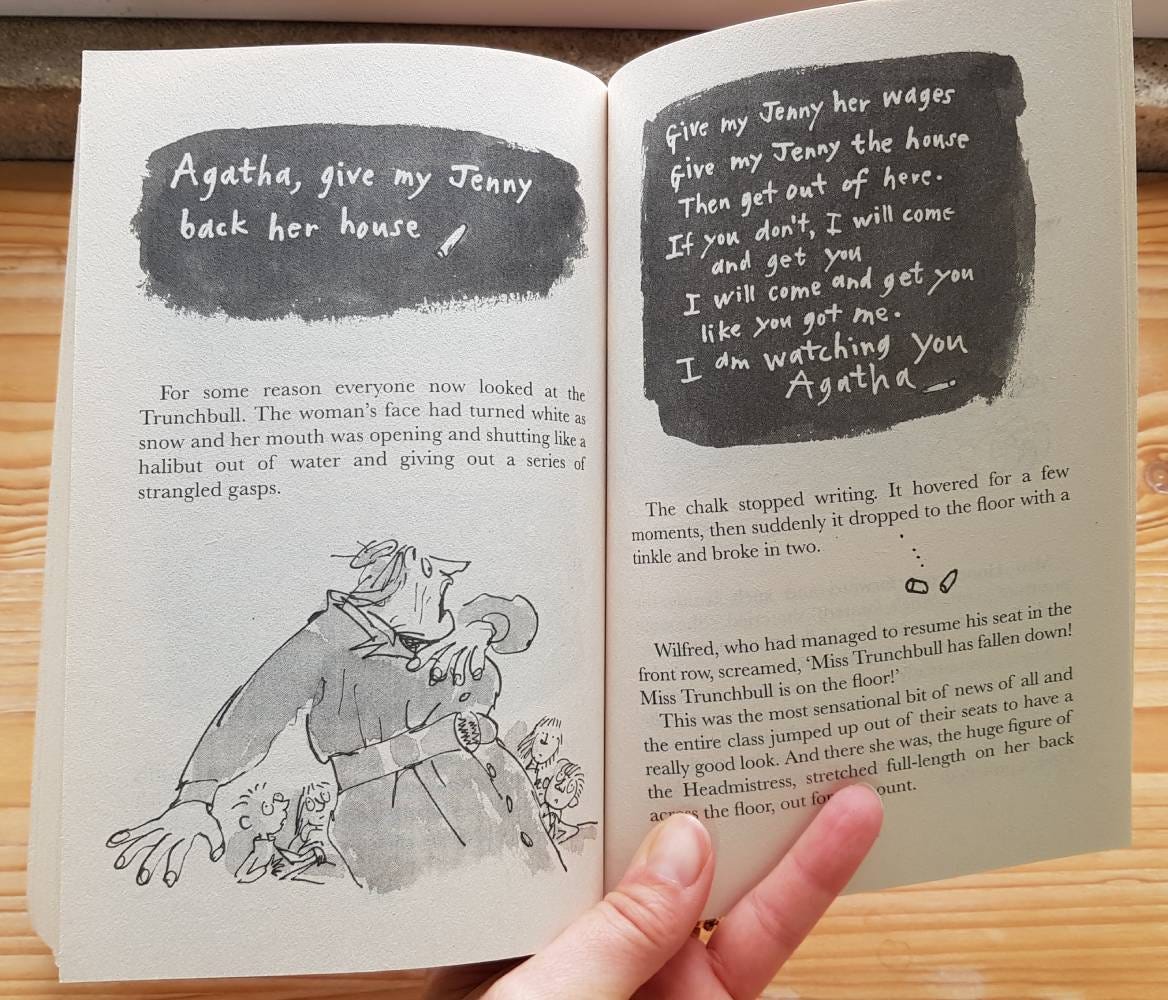 Agatha, give my Jenny
back her house
For some reason everyone now looked at the
Trunchbull. The woman's face had turned white as
snow and her mouth was opening and shutting like a
halibut out of water and giving out a series of
strangled gasps.
Give my Jenny her wages
Give my Jenny the house
Then get out of here.
If you don't, I will come
and get you
I will come and get you
like you got me.
I am watching you
Agatha
The chalk stopped writing. It hovered for a few
moments, then suddenly it dropped to the floor with a
tinkle and broke in two.
Wilfred, who had managed to resume his seat in the
front row, screamed, 'Miss Trunchbull has fallen down!
Miss Trunchbull is on the floor!'
This was the most sensational bit of news of all and
the entire class jumped up out of their seats to have a
really good look. And there she was, the huge figure of
the Headmistress, stretched full-length on her back
across the floor, out for ount.